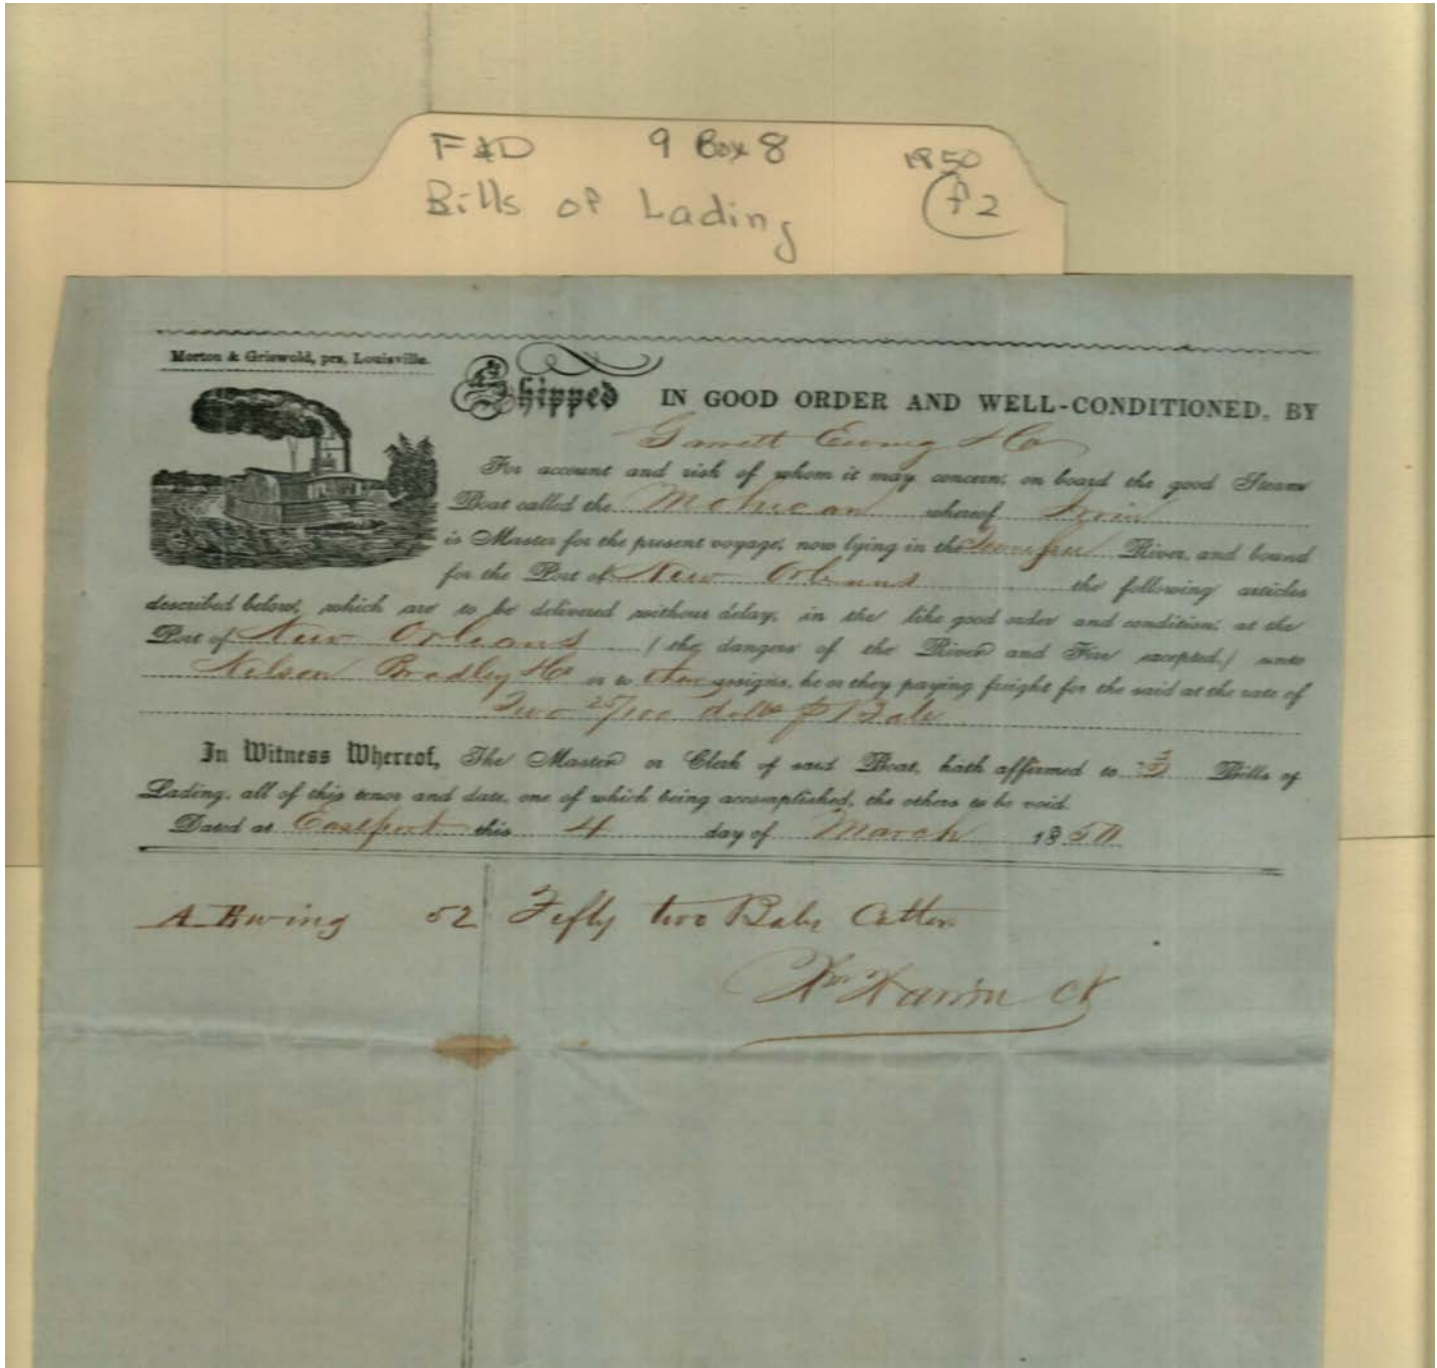 F&D 9 Box 8 1850
Bills of Lading f2
Morton & Griswold, prs, Louisville.
Shipped IN GOOD ORDER AND WELL-CONDITIONED, BY
Garrett Ewing & Co
For account and risk of whom it may concern, on board the good Steam
Boat called the Mohican whereof
is Master for the present voyage, now lying in the River, and bound
for the Port of New Orleans the following articles
described below, which are to be delivered without delay, in the like good order and condition, at the
Port of New Orleans (the dangers of the River and Fire excepted,) unto
Nelson Bradley & Co or to their assigns, he or they paying freight for the said at the rate of
Two 25/100 dolls ⅌ Bale
In Witness Whereof, The Master or Clerk of said Boat, hath affirmed to 3 Bills of
Lading, all of this tenor and date, one of which being accomplished, the others to be void.
Dated at Eastport this 4 day of March 1850
A Ewing 52 Fifty two Bales Cotton
Ck